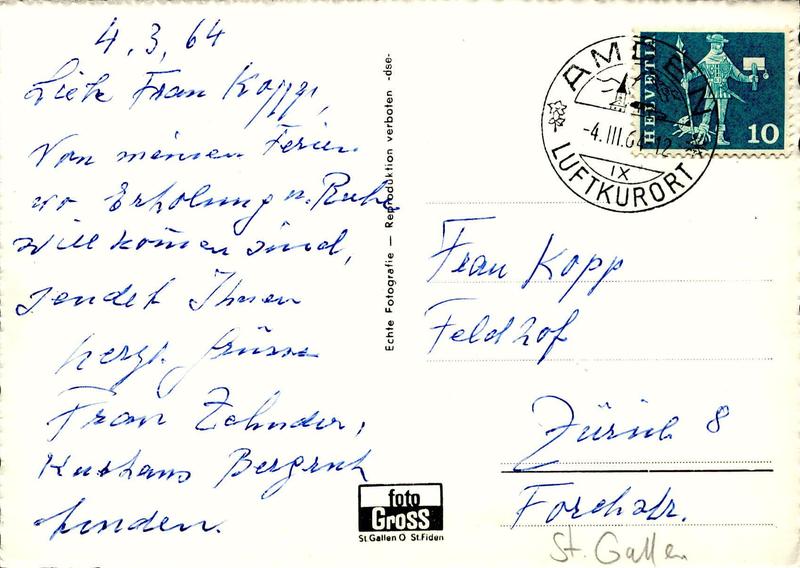 4.3.64
Liebe Frau Kopp,
Von meinen Ferien
wo Erholung u. Ruhe
willkomen sind,
sendet Ihnen
herzl. Grüsse
Frau Zehnder,
Kurhaus Bergruh
Amden.
Echte Fotografie — Reproduktion verboten -dse-
foto
Gross
St. Gallen O St. Fiden
AMDEN
-4.III.64-12
IX
LUFTKURORT
HELVETIA
10
Frau Kopp
Feldhof
Zürich 8
Forchstr.
St. Gallen